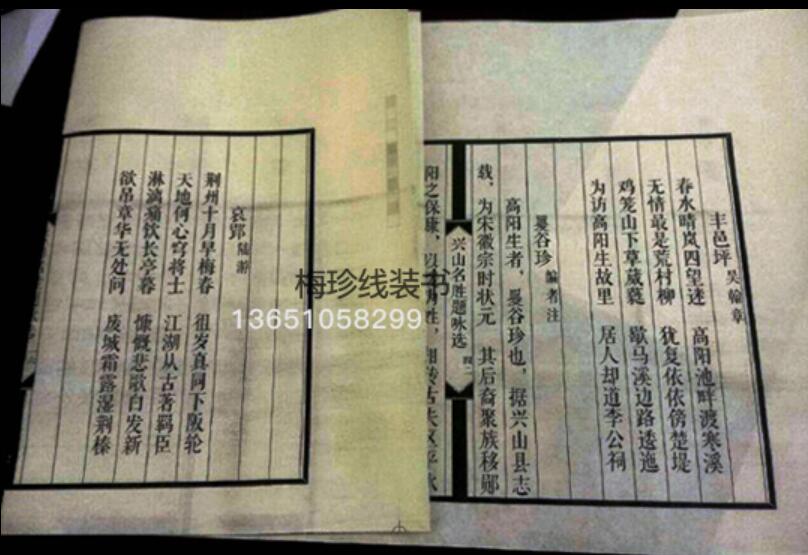 丰邑坪 吴翰章
春水晴岚四望迷 高阳池畔渡寒溪
无情最是荒村柳 犹复依依傍楚堤
鸡笼山下草葳蕤 歇马溪边路逶迤
为访高阳生故里 居人却道李公祠
谷珍 编者注
高阳生者，谷珍也，据兴山县志
载，为宋徽宗时状元 其后裔聚族移郧
兴山名胜题咏选 四二
阳之保康，
哀郢 陆游
荆州十月早梅春 徂岁真同下阪轮
天地何心穷将士 江湖从古著羁臣
淋漓痛饮长亭暮 慷慨悲歌白发新
欲吊章华无处问 废城霜露湿荆榛
梅珍线装书
13651058299